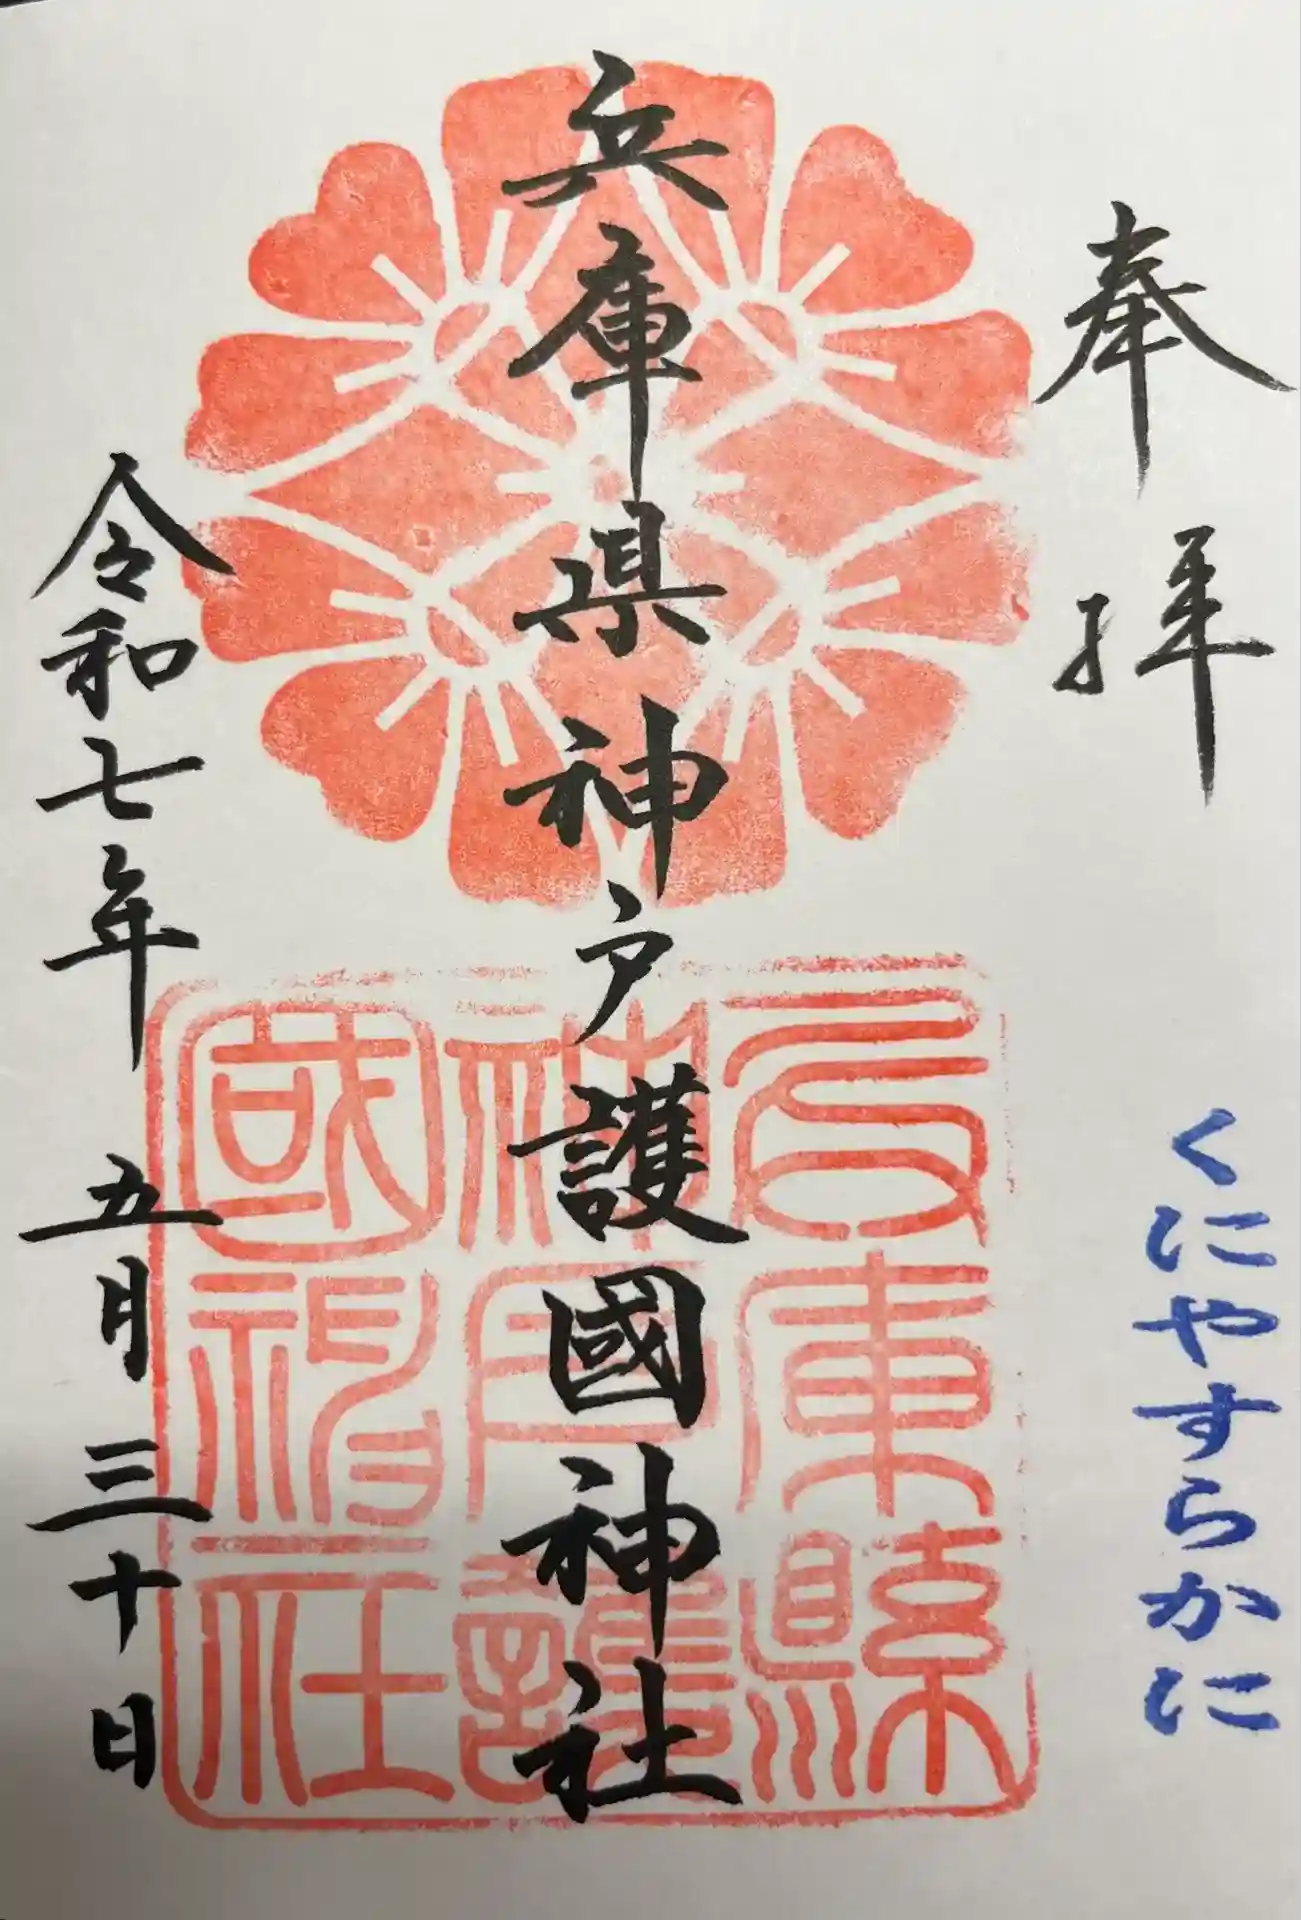 奉拝
くにやすらかに
兵庫県神戸護國神社
兵庫縣
神戸護
國神社
令和七年 五月三十日